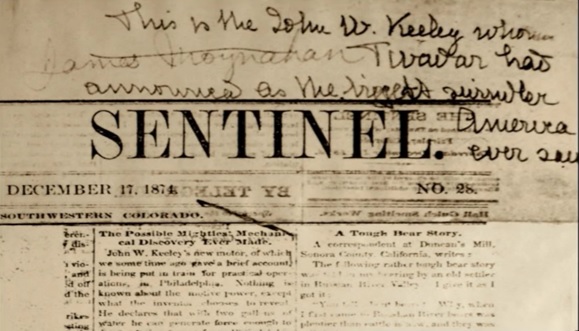 This is the John W. Keeley whom
James Moynahan Twadar had
announced as the bigest swindler
America
ever saw
SENTINEL.
DECEMBER 17, 1874.
BY TELE
NO. 28.
SOUTHWESTERN COLORADO.
The Possible Mightiest Mechani-
cal Discovery Ever Made.
John W. Keeley's new motor, of which
we some time ago gave a brief account,
and is being put in train for practical oper-
ations, in Philadelphia. Nothing is
known about the motive power, except
what the inventor chooses to reveal.
He declares that with two gall of
water he can generate force enough to
A Tough Bear Story.
A correspondent at Duncan's Mill,
Sonora County, California, writes:
The following rather tough bear story
by an old settler
in Russian River Valley. I give it as I
got it:
when
I first came to Russian River bears was
plentier than cattle is now, and they was